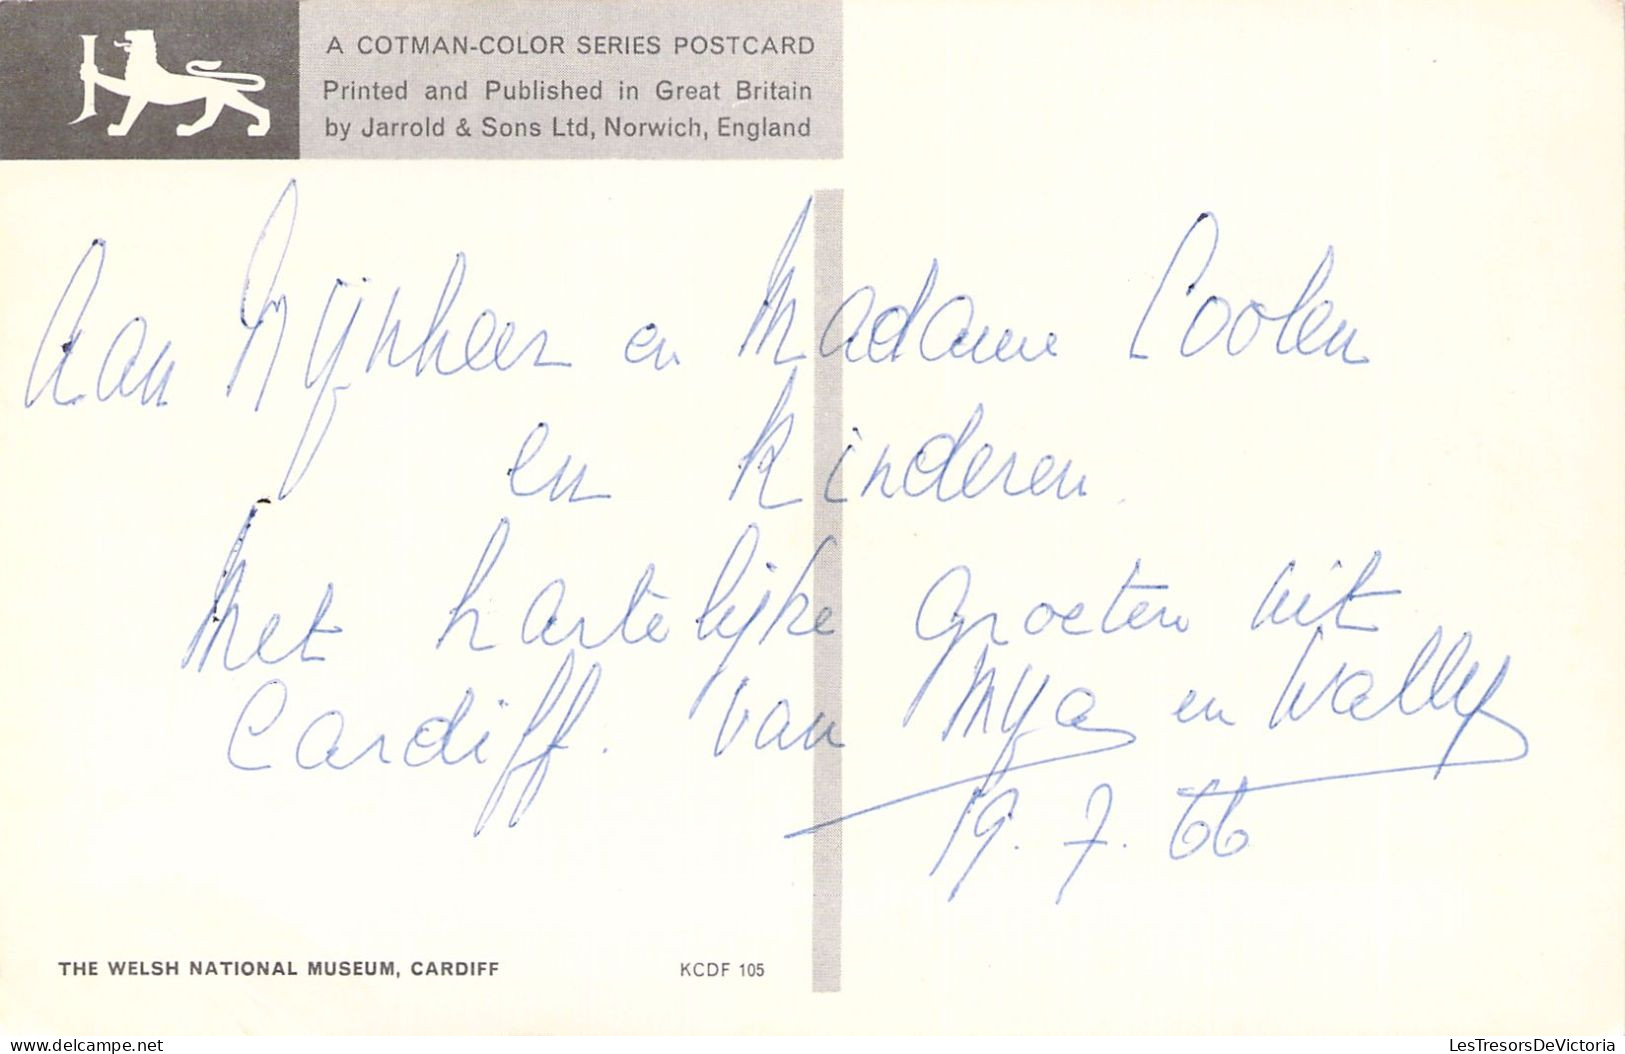 A COTMAN-COLOR SERIES POSTCARD
Printed and Published in Great Britain
by Jarrold & Sons Ltd, Norwich, England
Aan Mijnheer en Madame Coolen
en kinderen
Met hartelijke groeten uit
Cardiff. van Mya en Wally
19.7.66
THE WELSH NATIONAL MUSEUM, CARDIFF
KCDF 105
delcampe.net
LesTresorsDeVictoria